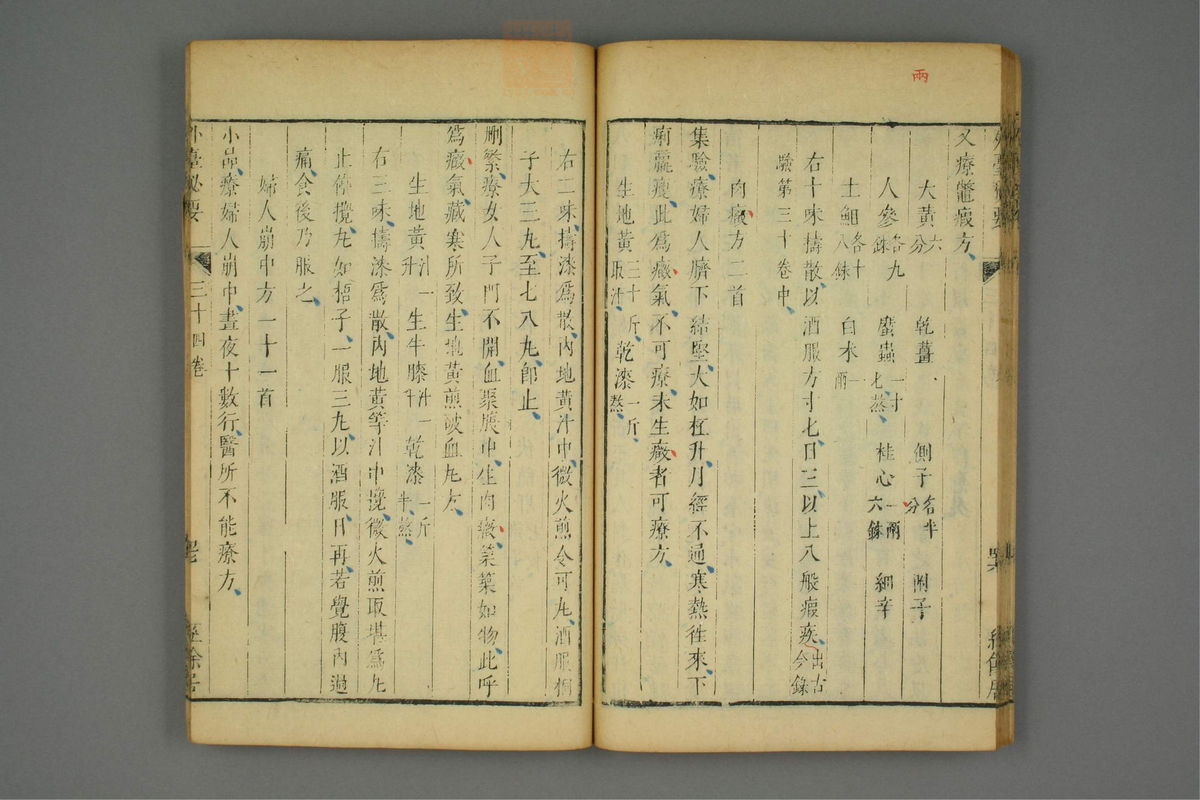 兩
又療鼈瘕方
大黃六分 乾薑 側子各半分 附子
人參各九銖 䗪蟲一寸匕蒸 桂心一兩六銖 細辛
土䱇各十八銖 白朮一兩
右十味擣散以酒服方寸匕日三以上八般瘕疾出古今錄
驗第三十卷中
肉癥方二首
集驗療婦人臍下結堅大如杯升月經不通寒熱往來下
痢羸瘦此爲癥氣不可療未生癥者可療方
生地黃三十斤取汁 乾漆一斤熬
右二味擣漆爲散內地黃汁中微火煎令可丸酒服桐
子大三丸至七八丸卽止
刪繁療女人子門不開血聚腹中生肉癥築築如物此呼
爲癥氣藏寒所致生地黃煎破血丸方
生地黃汁一升 生牛膝汁一升 乾漆一斤半熬
右三味擣漆爲散內地黃等汁中攪微火煎取堪爲丸
止停攪丸如梧子一服三丸以酒服日再若覺腹內過
痛食後乃服之
婦人崩中方一十一首
小品療婦人崩中晝夜十數行醫所不能療方
外臺秘要
三十四卷